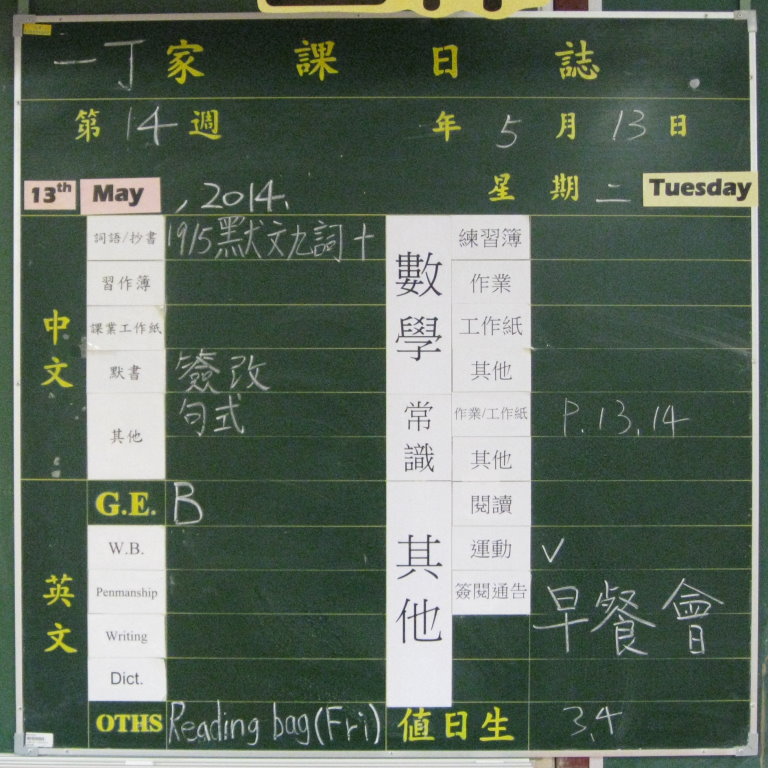 一丁家課日誌
第14週 年5月13日
13th May , 2014. 星期二 Tuesday
中文
詞語/抄書 1915默文九詞十
習作簿
課業工作紙
默書 簽改
其他 句式
英文
G.E. B
W.B.
Penmanship
Writing
Dict.
OTHS Reading bag (Fri)
數學
練習簿
作業
工作紙
其他
常識
作業/工作紙 P.13,14
其他
其他
閱讀
運動 v
簽閱通告 早餐會
值日生 3,4